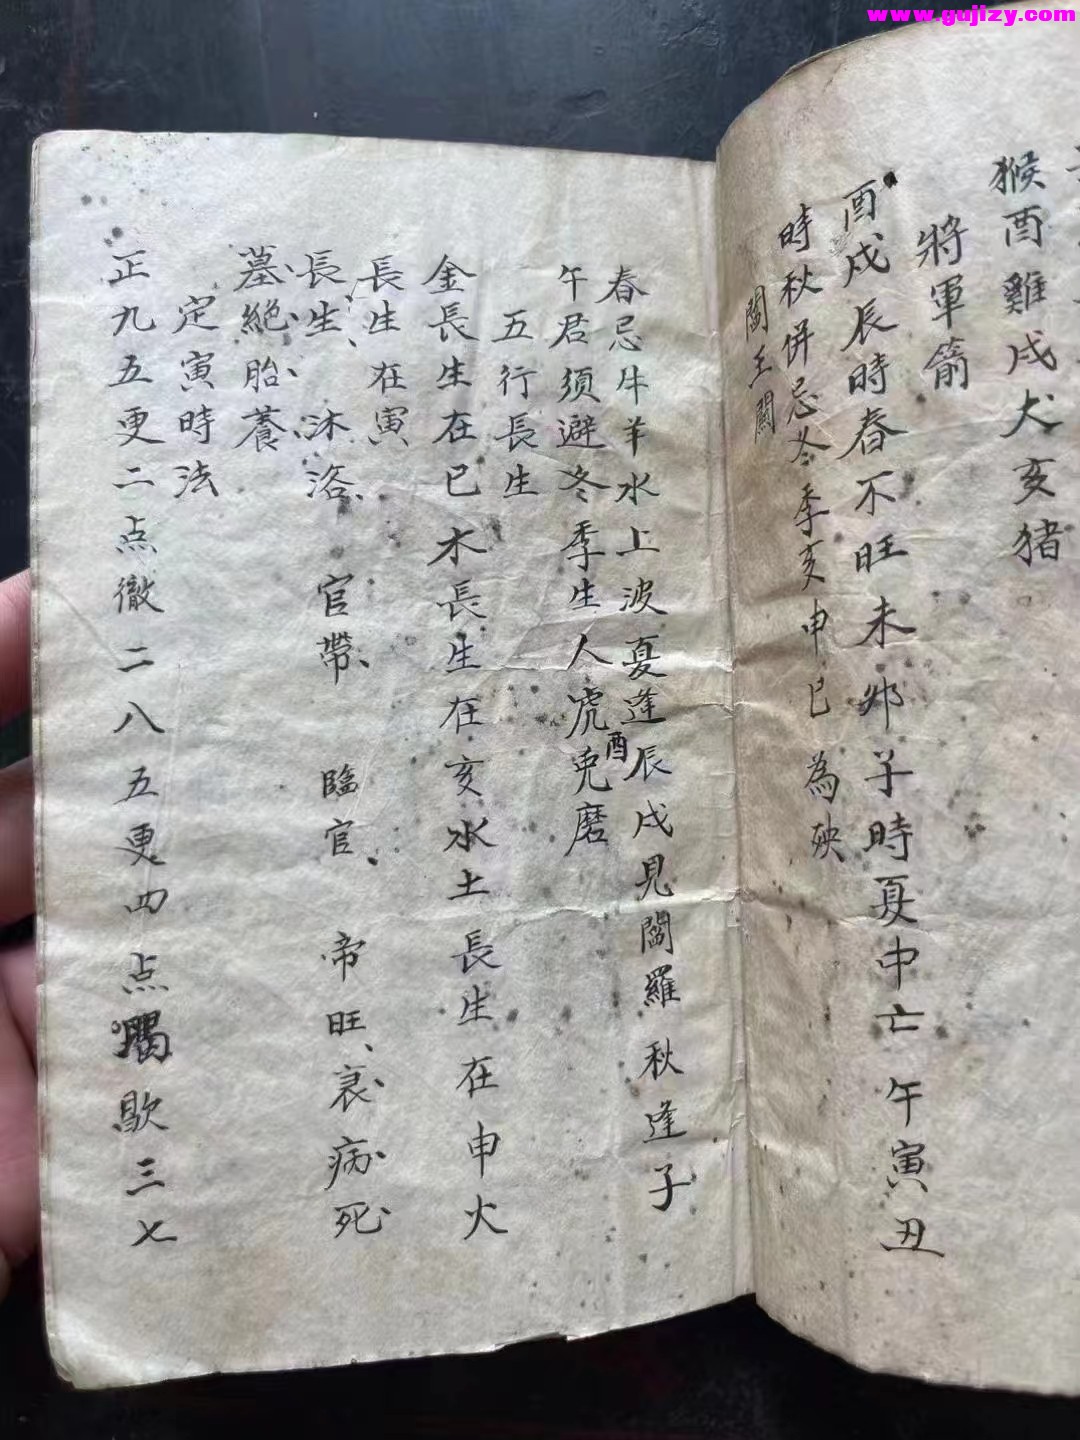 www.gujizy.com
猴酉雞戌犬亥猪
將軍箭
酉戌辰時春不旺未卯子時夏中亡午寅丑
時秋併忌冬季亥申巳為殃
閻王關
春忌牛羊水上波夏逢辰戌見閻羅秋逢子
午君須避冬季生人虎兔磨
酉
五行長生
金長生在巳木長生在亥水土長生在申火
長生在寅
長生、沐浴、官帶、臨官、帝旺、衰、病、死、
墓、絕、胎、養、
定寅時法
正九五更二点徹二八五更四点歇三七